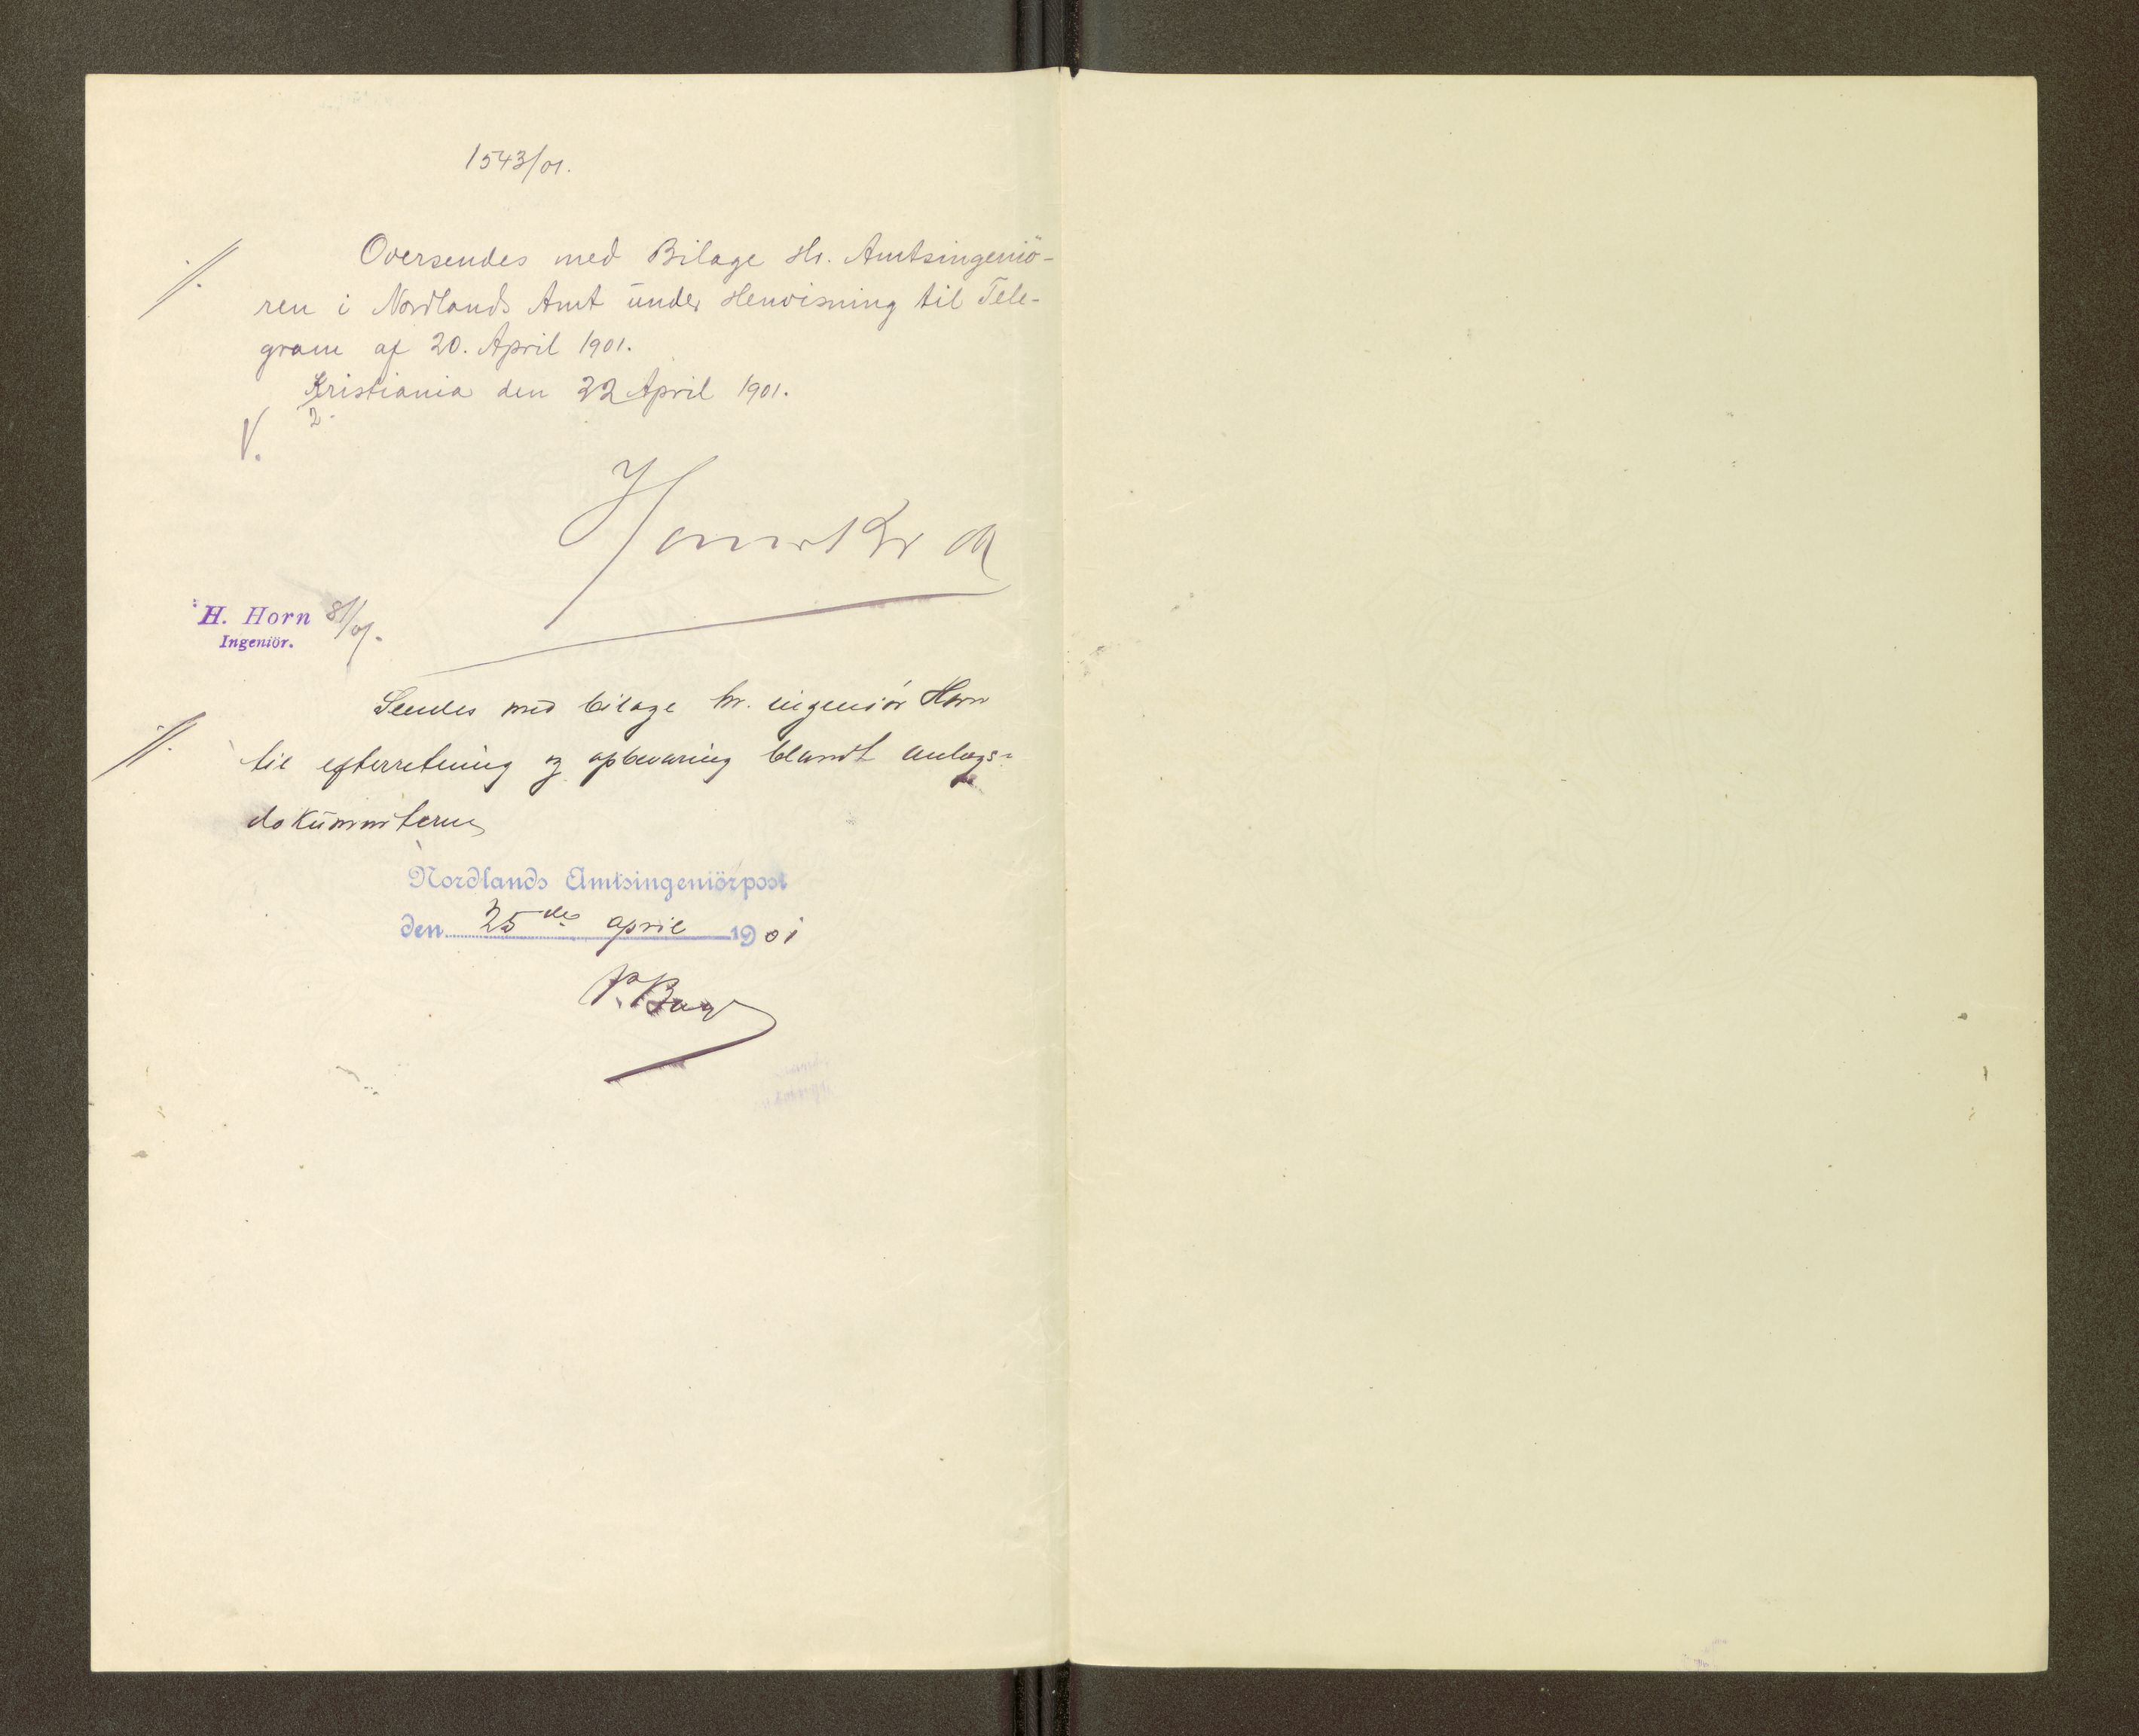 1543/01.
Oversendes med Bilage Hr. Amtsingeniö-
ren i Nordlands Amt under Henvisning til Tele-
gram af 20. April 1901.
Kristiania den 22 April 1901.
2.
V.
H. Horn 81/01.
Ingeniör.
Sendes med bilage hr. ingeniör Horn
til efterretning og opbevaring blandt anlægs-
dokumenterne
Nordlands Amtsingeniörpost
den 25de april 1901